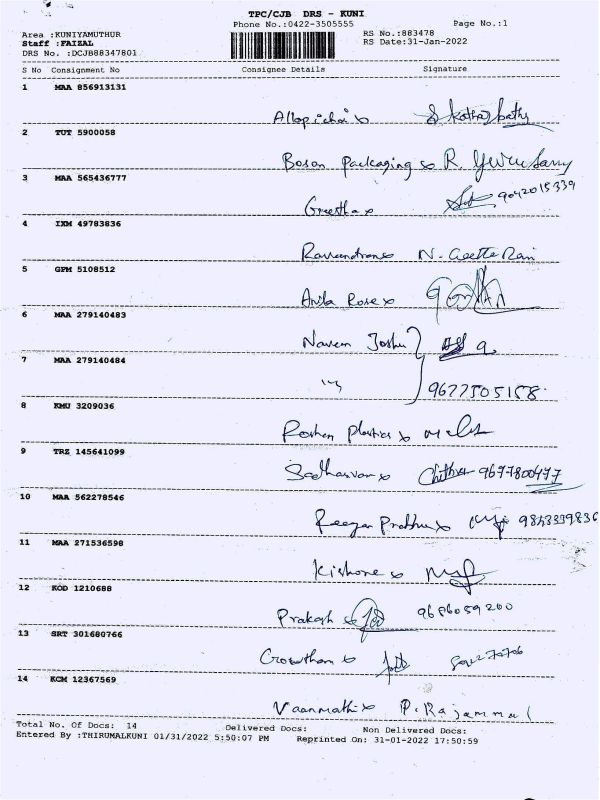 TPC/CJB DRS - KUNI
Phone No.:0422-3505555 Page No.:1
Area :KUNIYAMUTHUR RS No.:883478
Staff :FAIZAL RS Date:31-Jan-2022
DRS No. :DCJB88347801
S No Consignment No Consignee Details Signature
1 MAA 856913131
2 TUT 5900058
Boson Packaging R.
3 MAA 565436777
Geetha 9042015339
4 IXM 49783836
N. Geetha Rani
5 GPM 5108512
Anila Rose
6 MAA 279140483
Naveen Joshu
7 MAA 279140484
9677505158
8 KMU 3209036
Roshan Plastics
9 TRZ 145641099
Chithra 9677800477
10 MAA 562278546
Reegan Prabhu
11 MAA 271536598
Kishore
12 KOD 1210688
Prakash 9686059200
13 SRT 301680766
Gowtham
14 KCM 12367569
Vaanmathi P. Rajammal
Total No. Of Docs: 14 Delivered Docs: Non Delivered Docs:
Entered By :THIRUMALKUNI 01/31/2022 5:50:07 PM Reprinted On: 31-01-2022 17:50:59